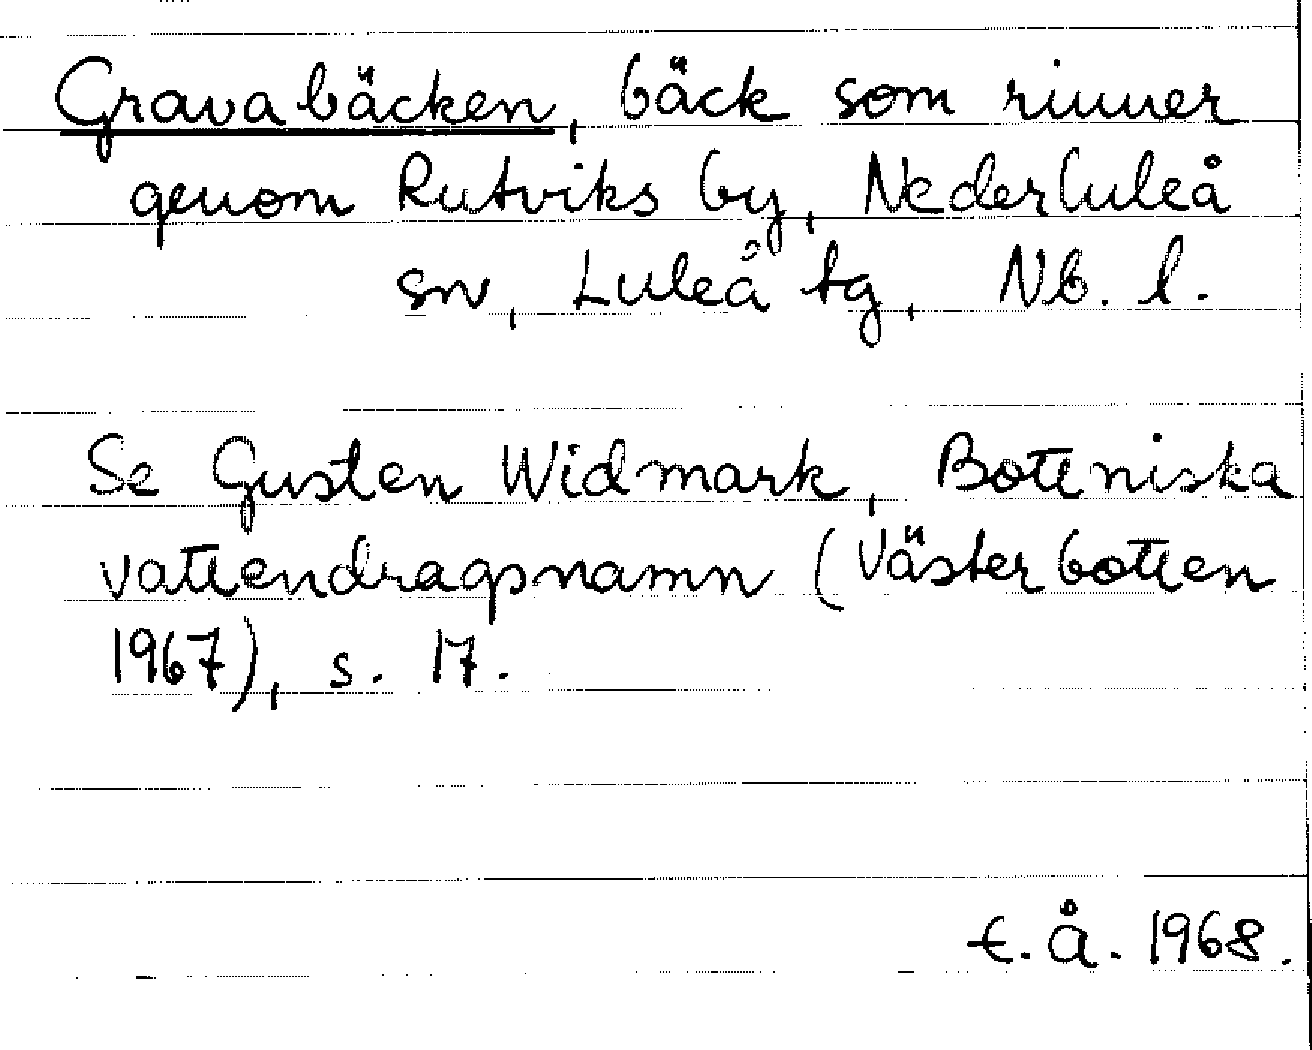 Gravabäcken, bäck som rinner
genom Rutviks by, Nederluleå
sn, Luleå tg, Nb. l.
Se Gusten Widmark, Bottniska
vattendragsnamn (Västerbotten
1967), s. 17.
t. å. 1968.